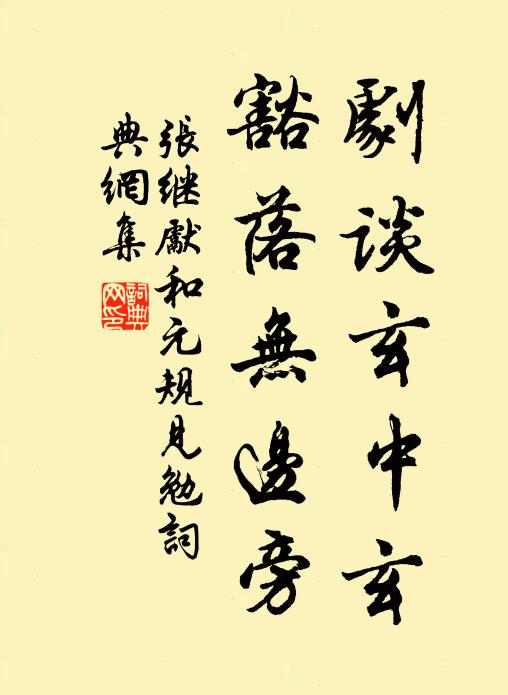 劇談玄中玄
豁落無邊旁
張继獻和元規見勉詞
典網集
詞典
网印